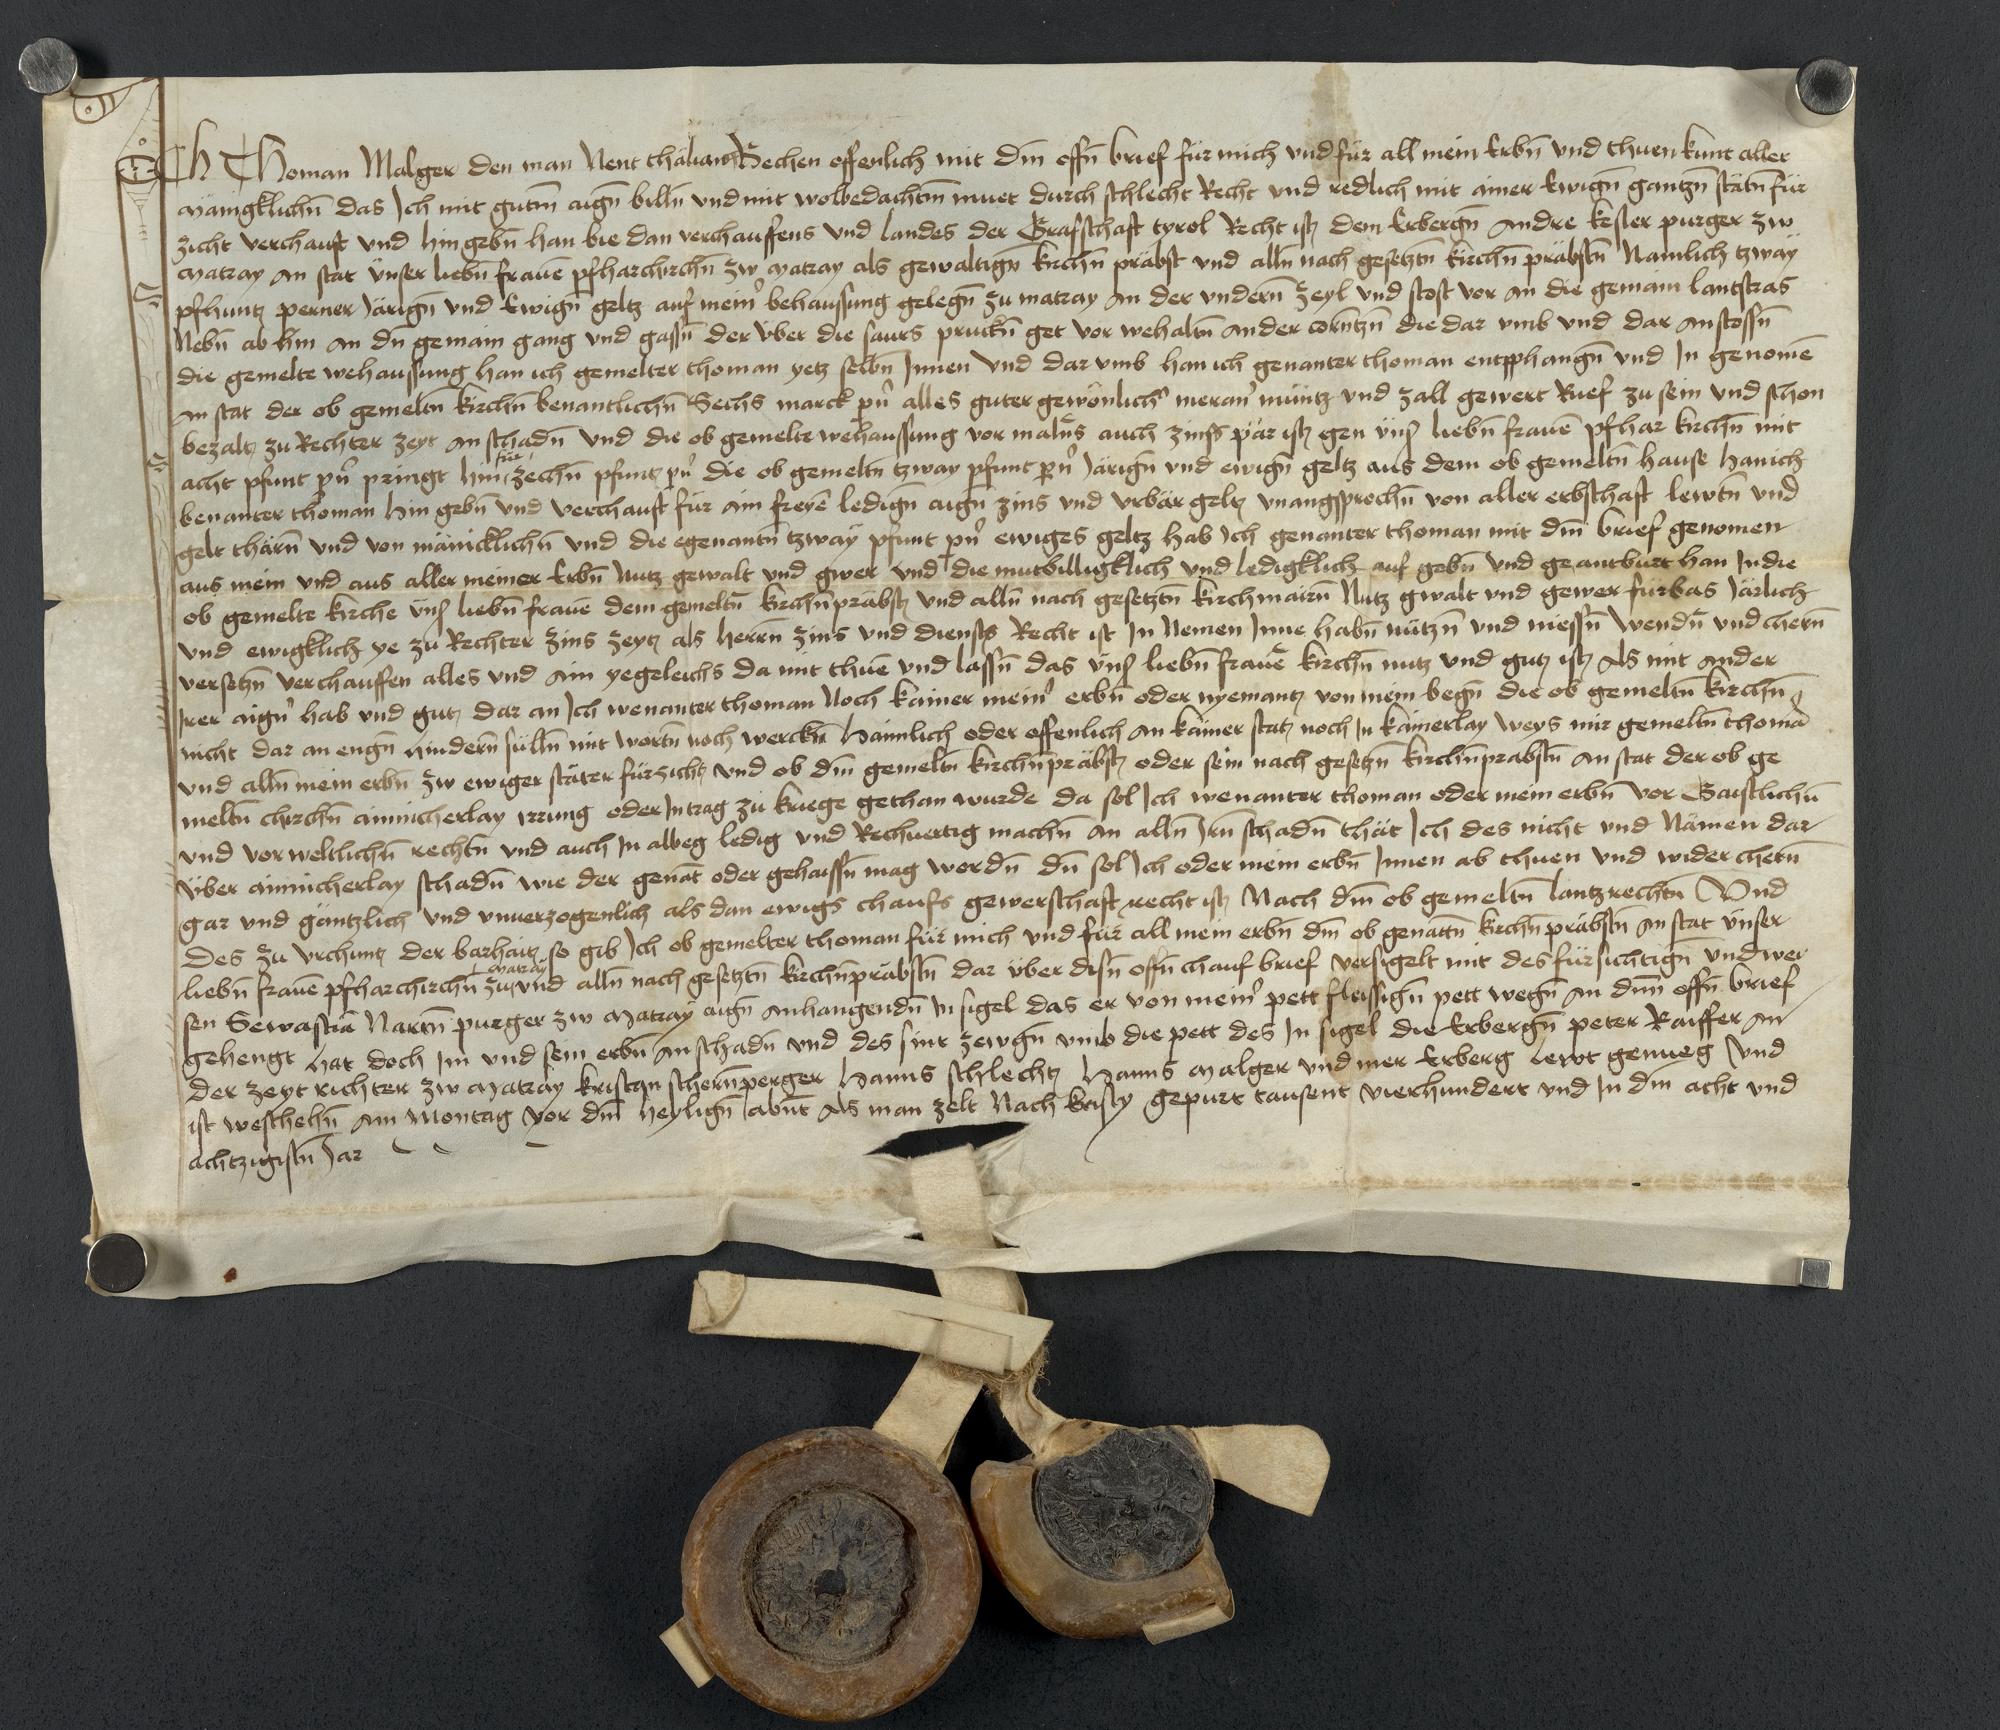 Ich Thoman Malger den man Nent thäliant Vechen offenlich mit dm̄ offn̄ brief für mich vnd für all mein Erbn̄ vnd thuen kunt aller
mänigklichn̄ das Ich mit gutm̄ aign̄ billn̄ vnd mit wolbedachtm̄ muet durch schlecht Recht vnd redlich mit ainer Ewign̄ gantzn̄ stätn̄ für
zicht verchauft vnd hin gebn̄ han bie dan verchauffens vnd landes der Grafschaft tyrol Recht ist dem Erbergn̄ Andre kesler purger zw
Matray an stat Ünser liebn̄ frauē pfharchirchn̄ zw Matray als gewaltign̄ kirchn̄ präbst vnd alln̄ nach gesetztn̄ kirchn̄ präbstn̄ Namlich tzway
pfhuntz perner Järign̄ vnd Ewign̄ geltz auf meinʼ behaussung gelegn̄ zu matray an der vndern̄ Zeyl vnd stost vor an die gemain lantstras
Nebn̄ ab hin an dn̄ gemain gang vnd gassn̄ der über die saurs pruckn̄ get vor wehaltn̄ ander cörntzn̄ die dar vmb vnd dar anstossn̄
die gemelte wehaussung han ich gemelter thoman yetz selbn̄ Innen vnd dar vmb han ich genanter thoman entpphangn̄ vnd In genomē
an stat der ob gemeltn̄ kirchn̄ benantlichn̄ Sechs marck pn̄ʼ alles guter gewönlichʼ meranʼ müntz vnd zall gewert Rief zu sein vnd schon
bezalt zu Rechter zeyt an schadn̄ vnd die ob gemelte wehaussung vor malns auch zinss pär ist gen ünsʼ liebn̄ frauē pfhar kirchn̄ mit
acht pfunt pn̄ʼ pringt hin für zechn̄ pfunt pn̄ʼ die ob gemeltn̄ tzway pfunt pn̄ʼ Järign̄ vnd ewign̄ geltz aus dem ob gemeltn̄ hause han ich
benanter thoman hin gebn̄ vnd verchauft für ain freyē ledign̄ aign̄ zins vnd vrbär gelt vnangsprochn̄ von aller erbschaft lewtn̄ vnd
gelt thärn̄ vnd von mänicklichn̄ vnd die egenantn̄ tzway pfunt pn̄ʼ ewiges geltz hab Ich genanter thoman mit dm̄ brief genomen
aus mein vnd aus aller meiner Erbn̄ Nutz gewalt vnd gwer vnd die mutbilligklich vnd ledigklich auf gebn̄ vnd geantburt han In die
ob gemelte kirche ünsʼ liebn̄ frauē dem gemeltn̄ kirchn̄präbst vnd alln̄ nach gesetztn̄ kirchmairn̄ Nutz gwalt vnd gewer fürbas Järlich
vnd ewigklich ye zu Rechter zins zeyt als herrn̄ zins vnd diensts Recht ist In Nemen Inne habn̄ nützn̄ vnd niessn̄ wendn̄ vnd chern̄
versetzn̄ verchauffen alles vnd ain yegeleichs da mit thuē vnd lassn̄ das ünsʼ liebn̄ frauē kirchn̄ nutz vnd gut ist als mit ander
Irer aignʼ hab vnd gut dar an Ich wenanter thoman Noch kainer meinʼ erbn̄ oder nyemant von mein begn̄ die ob gemeltn̄ kirchn̄
nicht dar an engn̄ hindern̄ sülln̄ mit wortn̄ noch werckn̄ hainlich oder offenlich an kainer stat noch In kainerlay weys mir gemeltn̄ thomā
vnd alln̄ mein erbn̄ zw ewiger stäter fürzicht vnd ob dm̄ gemeltn̄ kirchn̄präbst oder sein nach gesetzn̄ kirchn̄prabstn̄ an stat der ob ge
meltn̄ chirchn̄ ainicherlay irrung oder Intrag zu kriege gethan wurde da sol Ich wenanter thoman oder mein erbn̄ vor Gaistlichn̄
vnd vor weltlichn̄ rechtn̄ vnd auch In albeg ledig vnd Rechuertig machn̄ an alln̄ Irn̄ schadn̄ thät Ich des nicht vnd Nämen dar
über ainicherlay schadn̄ wie der genāt oder gehaissn̄ mag werdn̄ dn̄ sol Ich oder mein erbn̄ Innen ab thuen vnd wider chern̄
gar vnd gäntzlich vnd vnuerzogenlich als dan ewigs chaufs gewerschaft recht ist Nach dm̄ ob gemeltn̄ lantzrechtn̄ Vnd
des zu vrchunt der barhait so gib Ich ob gemelter thoman für mich vnd für all mein erbn̄ dm̄ ob genāttn̄ kirchn̄präbstn̄ an stat ünser
liebn̄ frauē pfharchirchn̄ zu Matray vnd alln̄ nach gesetztn̄ kirchn̄präbstn̄ dar über disn̄ offn̄ chauf brief versigelt mit des fürsichtign̄ vnd wei
sen Sewastiā Narrn̄ purger zw Matray aign̄ anhangendn̄ In sigel das er von meinʼ pett fleissign̄ pett wegn̄ an dn̄n̄ offn̄ brief
gehengt hat doch Im vnd sein erbn̄ an schadn̄ vnd des sint zewgn̄ vmb die pett des In sigel die Erbergn̄ peter Raiffer an
der zeyt richter zw Matray kristan schern̄perger hanns schlecht hanns Malger vnd mer Erberg lewt genueg Vnd
ist weschehn̄ am Montag vor dm̄ heylign̄ abn̄t Als man zelt Nach kristy gepurt tausent vierhundert vnd In dm̄ acht vnd
achtzigistn̄ Jar